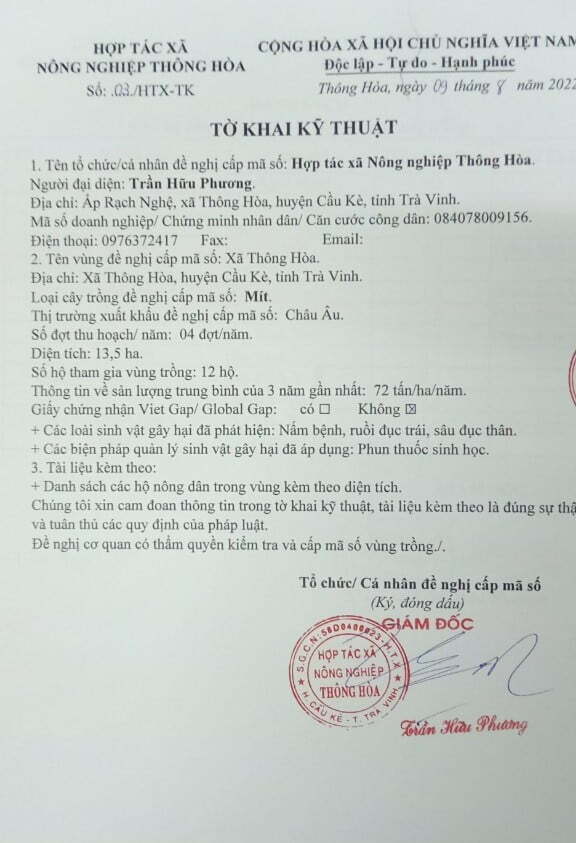 HỢP TÁC XÃ
NÔNG NGHIỆP THÔNG HÒA
Số: .03./HTX-TK
CỘNG HÒA XÃ HỘI CHỦ NGHĨA VIỆT NAM
Độc lập - Tự do - Hạnh phúc
Thông Hòa, ngày 09 tháng 8 năm 2022
TỜ KHAI KỸ THUẬT
1. Tên tổ chức/cá nhân đề nghị cấp mã số: Hợp tác xã Nông nghiệp Thông Hòa.
Người đại diện: Trần Hữu Phương.
Địa chỉ: Ấp Rạch Nghệ, xã Thông Hòa, huyện Cầu Kè, tỉnh Trà Vinh.
Mã số doanh nghiệp/ Chứng minh nhân dân/ Căn cước công dân: 084078009156.
Điện thoại: 0976372417 Fax: Email:
2. Tên vùng đề nghị cấp mã số: Xã Thông Hòa.
Địa chỉ: Xã Thông Hòa, huyện Cầu Kè, tỉnh Trà Vinh.
Loại cây trồng đề nghị cấp mã số: Mít.
Thị trường xuất khẩu đề nghị cấp mã số: Châu Âu.
Số đợt thu hoạch/ năm: 04 đợt/năm.
Diện tích: 13,5 ha.
Số hộ tham gia vùng trồng: 12 hộ.
Thông tin về sản lượng trung bình của 3 năm gần nhất: 72 tấn/ha/năm.
Giấy chứng nhận Viet Gap/ Global Gap: có ☐ Không ☒
+ Các loài sinh vật gây hại đã phát hiện: Nấm bệnh, ruồi đục trái, sâu đục thân.
+ Các biện pháp quản lý sinh vật gây hại đã áp dụng: Phun thuốc sinh học.
3. Tài liệu kèm theo:
+ Danh sách các hộ nông dân trong vùng kèm theo diện tích.
Chúng tôi xin cam đoan thông tin trong tờ khai kỹ thuật, tài liệu kèm theo là đúng sự thậ
và tuân thủ các quy định của pháp luật.
Đề nghị cơ quan có thẩm quyền kiểm tra và cấp mã số vùng trồng./.
Tổ chức/ Cá nhân đề nghị cấp mã số
(Ký, đóng dấu)
GIÁM ĐỐC
HỢP TÁC XÃ
NÔNG NGHIỆP
THÔNG HÒA
H. CẦU KÈ - T. TRÀ VINH
Trần Hữu Phương